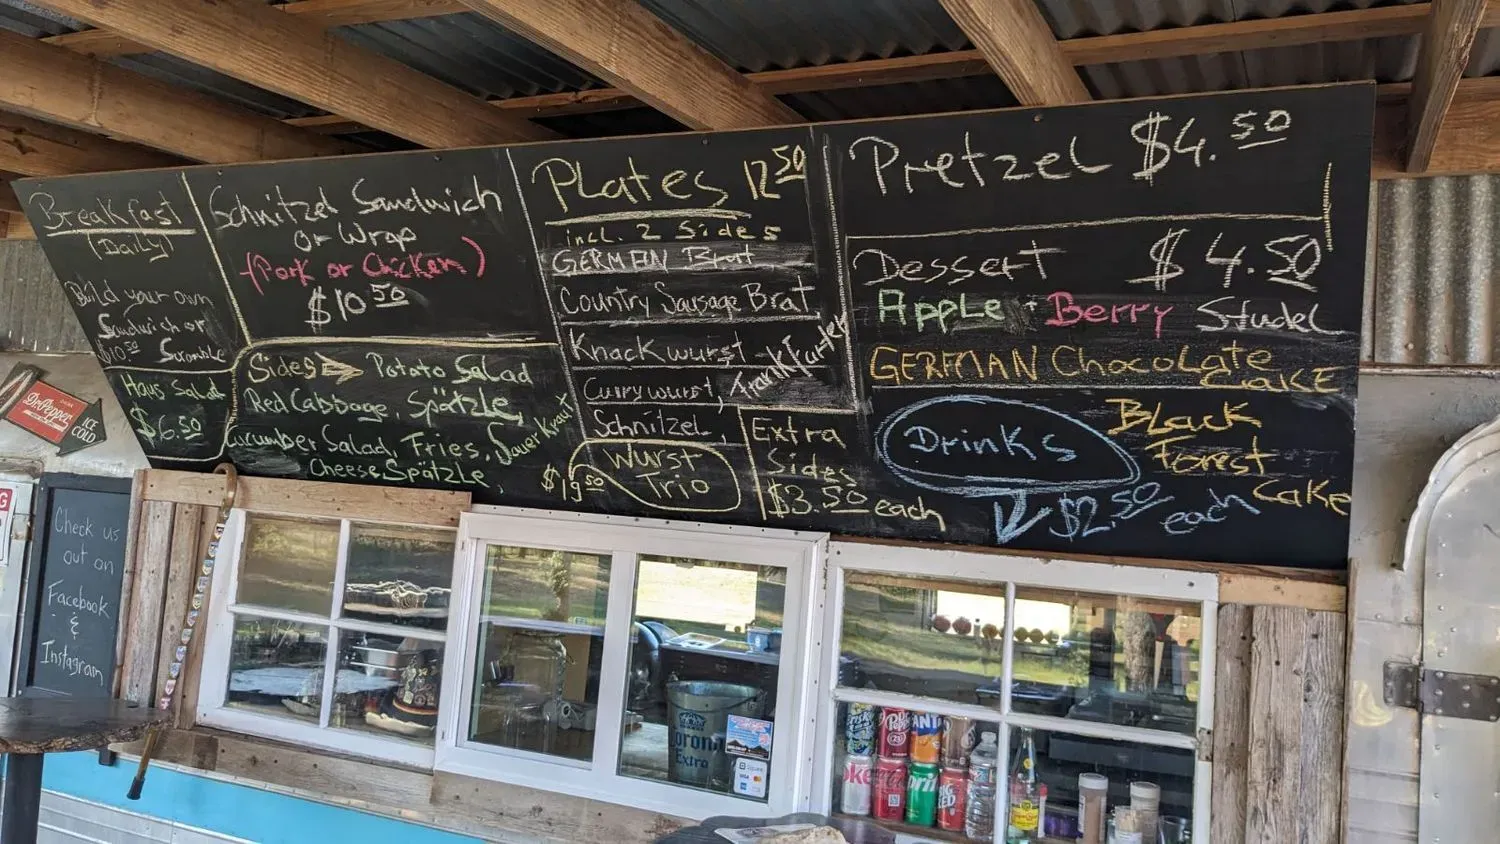 Breakfast
(Daily)
Build your own
Sandwich or
$10.50 Scramble
Haus Salad
$6.50
Schnitzel Sandwich
or Wrap
(Pork or Chicken)
$10 50
Sides Potato Salad
Red Cabbage Spätzle,
Cucumber Salad, Fries, Sauer Kraut
Cheese Spätzle,
Plates 12 50
incl. 2 Sides
GERMAN Brat
Country Sausage Brat,
Knackwurst
Frankfurter
Currywurst,
Schnitzel,
Wurst
Trio
$19 50
Extra
Sides
$3.50 each
Pretzel $4.50
Dessert $4.50
Apple + Berry Studel
GERMAN Chocolate
CAKE
Black
Forest
Cake
Drinks
$2.50
each
Dr Pepper
ICE
COLD
Check us
out on
Facebook
&
Instagram
Corona
Extra
VISA